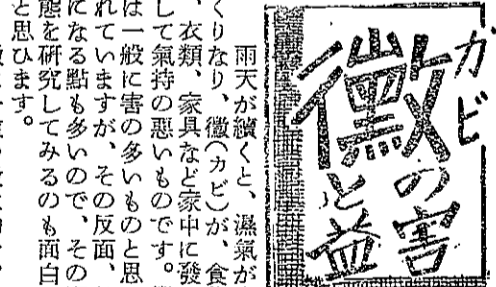 カビ
黴の害
と益
雨天が續くと、濕氣が
くりなり、黴(カビ)が、食
、衣類、家具など家中に發
して氣持の悪いものです。
は一般に害の多いものと思
れていますが、その反面、
になる點も多いので、その
態を研究してみるのも面白
と思ひます。